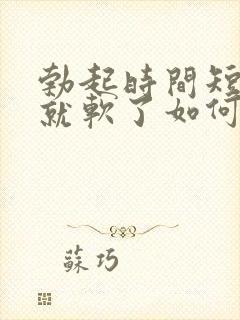 勃起時間短
就軟了如何
蘇巧